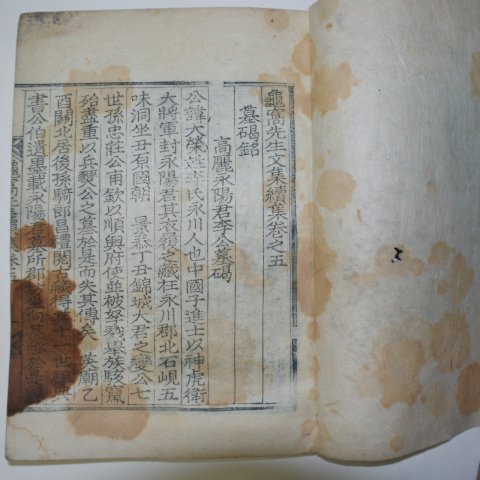 龜窩先生文集續集卷之五
墓碣銘
高麗永陽君李公墓碣
公諱大榮姓李氏永川人也中國子進士以神虎衛
大將軍封永陽君其衣履之藏在永川郡北石峴五
味洞坐丑原國朝 景泰丁丑錦城大君之變公七
世孫忠莊公甫欽以順興府使並被慘戮擧族駭竄
殆盡重以兵燹公之墓於是而失其傳矣 英廟乙
酉關北居後孫騎郎昌禮閱古藏得十一世祖
書公伯遺墨載永陽君墓所郡